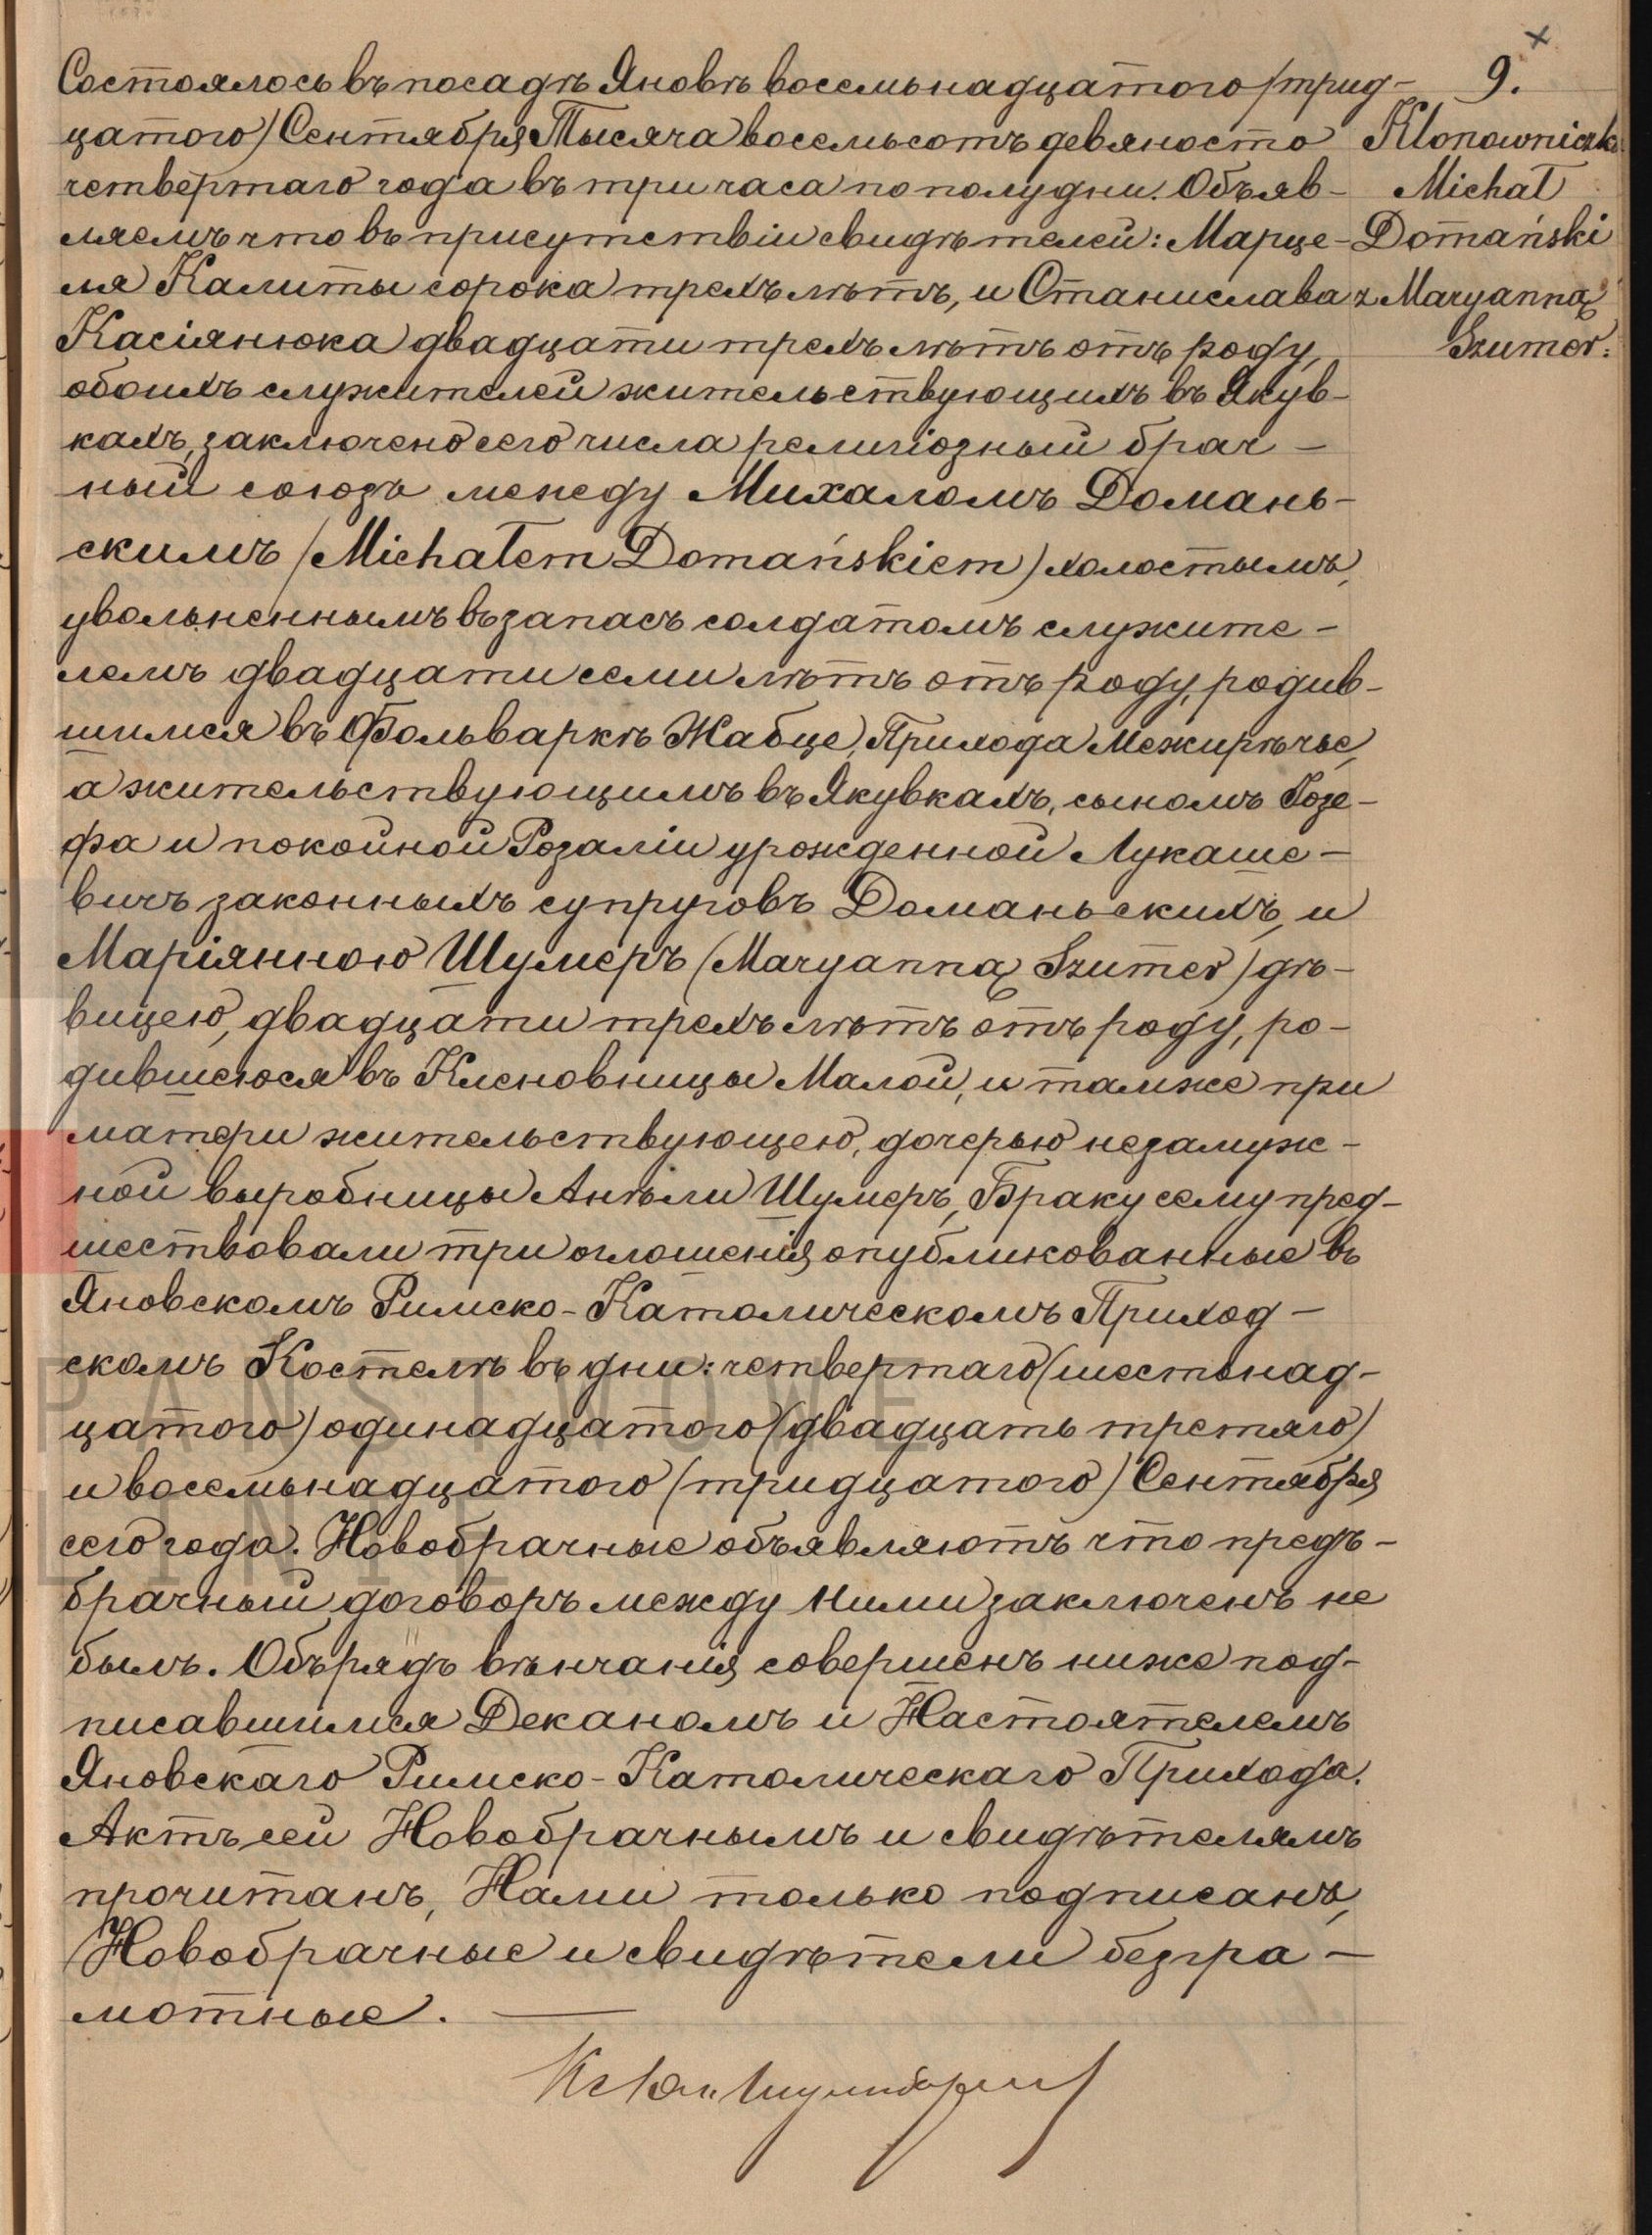 Состоялось въ посадѣ Яновѣ восемьнадцатого /трид-
цатого) Сентября Тысяча восемьсотъ девяносто
четвертаго года въ три часа по полудни. Объяв-
ляемъ что въ присутствіи свидѣтелей: Марце-
ля Калиты сорока трехъ лѣтъ, и Станислава
Касіянюка двадцати трехъ лѣтъ отъ роду,
обоихъ служителей жительствующихъ въ Якув-
кахъ, заключено сего числа религіозный брач-
ный союзъ между Михаломъ Домань-
скимъ /Michałem Domańskiem) холостымъ,
увольненнымъ въ запасъ солдатомъ служите-
лемъ двадцати семи лѣтъ отъ роду, родив-
шимся въ Фольваркѣ Жабце, Прихода Межирѣчье,
а жительствующимъ въ Якувкахъ, сыномъ Іозе-
фа и покойной Розаліи урожденной Лукаше-
вичъ законныхъ супруговъ Доманьскихъ, и
Маріянною Шумеръ (Maryanną Szumer) дѣ-
вицею, двадцати трехъ лѣтъ отъ роду, ро-
дившеюся въ Кленовницы Малой, и тамже при
матери жительствующею, дочерью незамуж-
ной выробницы Анѣли Шумеръ, Браку сему пред-
шествовали три оглошенія опубликованные въ
Яновскомъ Римско-Католическомъ Приход-
скомъ Костелѣ въ дни: четвертаго (шестонад-
цатого) одинадцатого (двадцать третяго)
и восемьнадцатого (тридцатого) Сентября
сего года. Новобрачные объявляютъ что предъ-
брачный договоръ между ними заключенъ не
былъ. Обърядъ вѣнчанія совершенъ ниже под-
писавшимся Деканомъ и Настоятелемъ
Яновскаго Римско-Католическаго Прихода.
Актъ сей Новобрачнымъ и свидѣтелямъ
прочитанъ, Нами только подписанъ,
Новобрачные и свидѣтели безгра-
мотные.
9.
Klonowniczk.
Michał
Domański
z Maryanną
Szumer.
PAŃSTWOWE